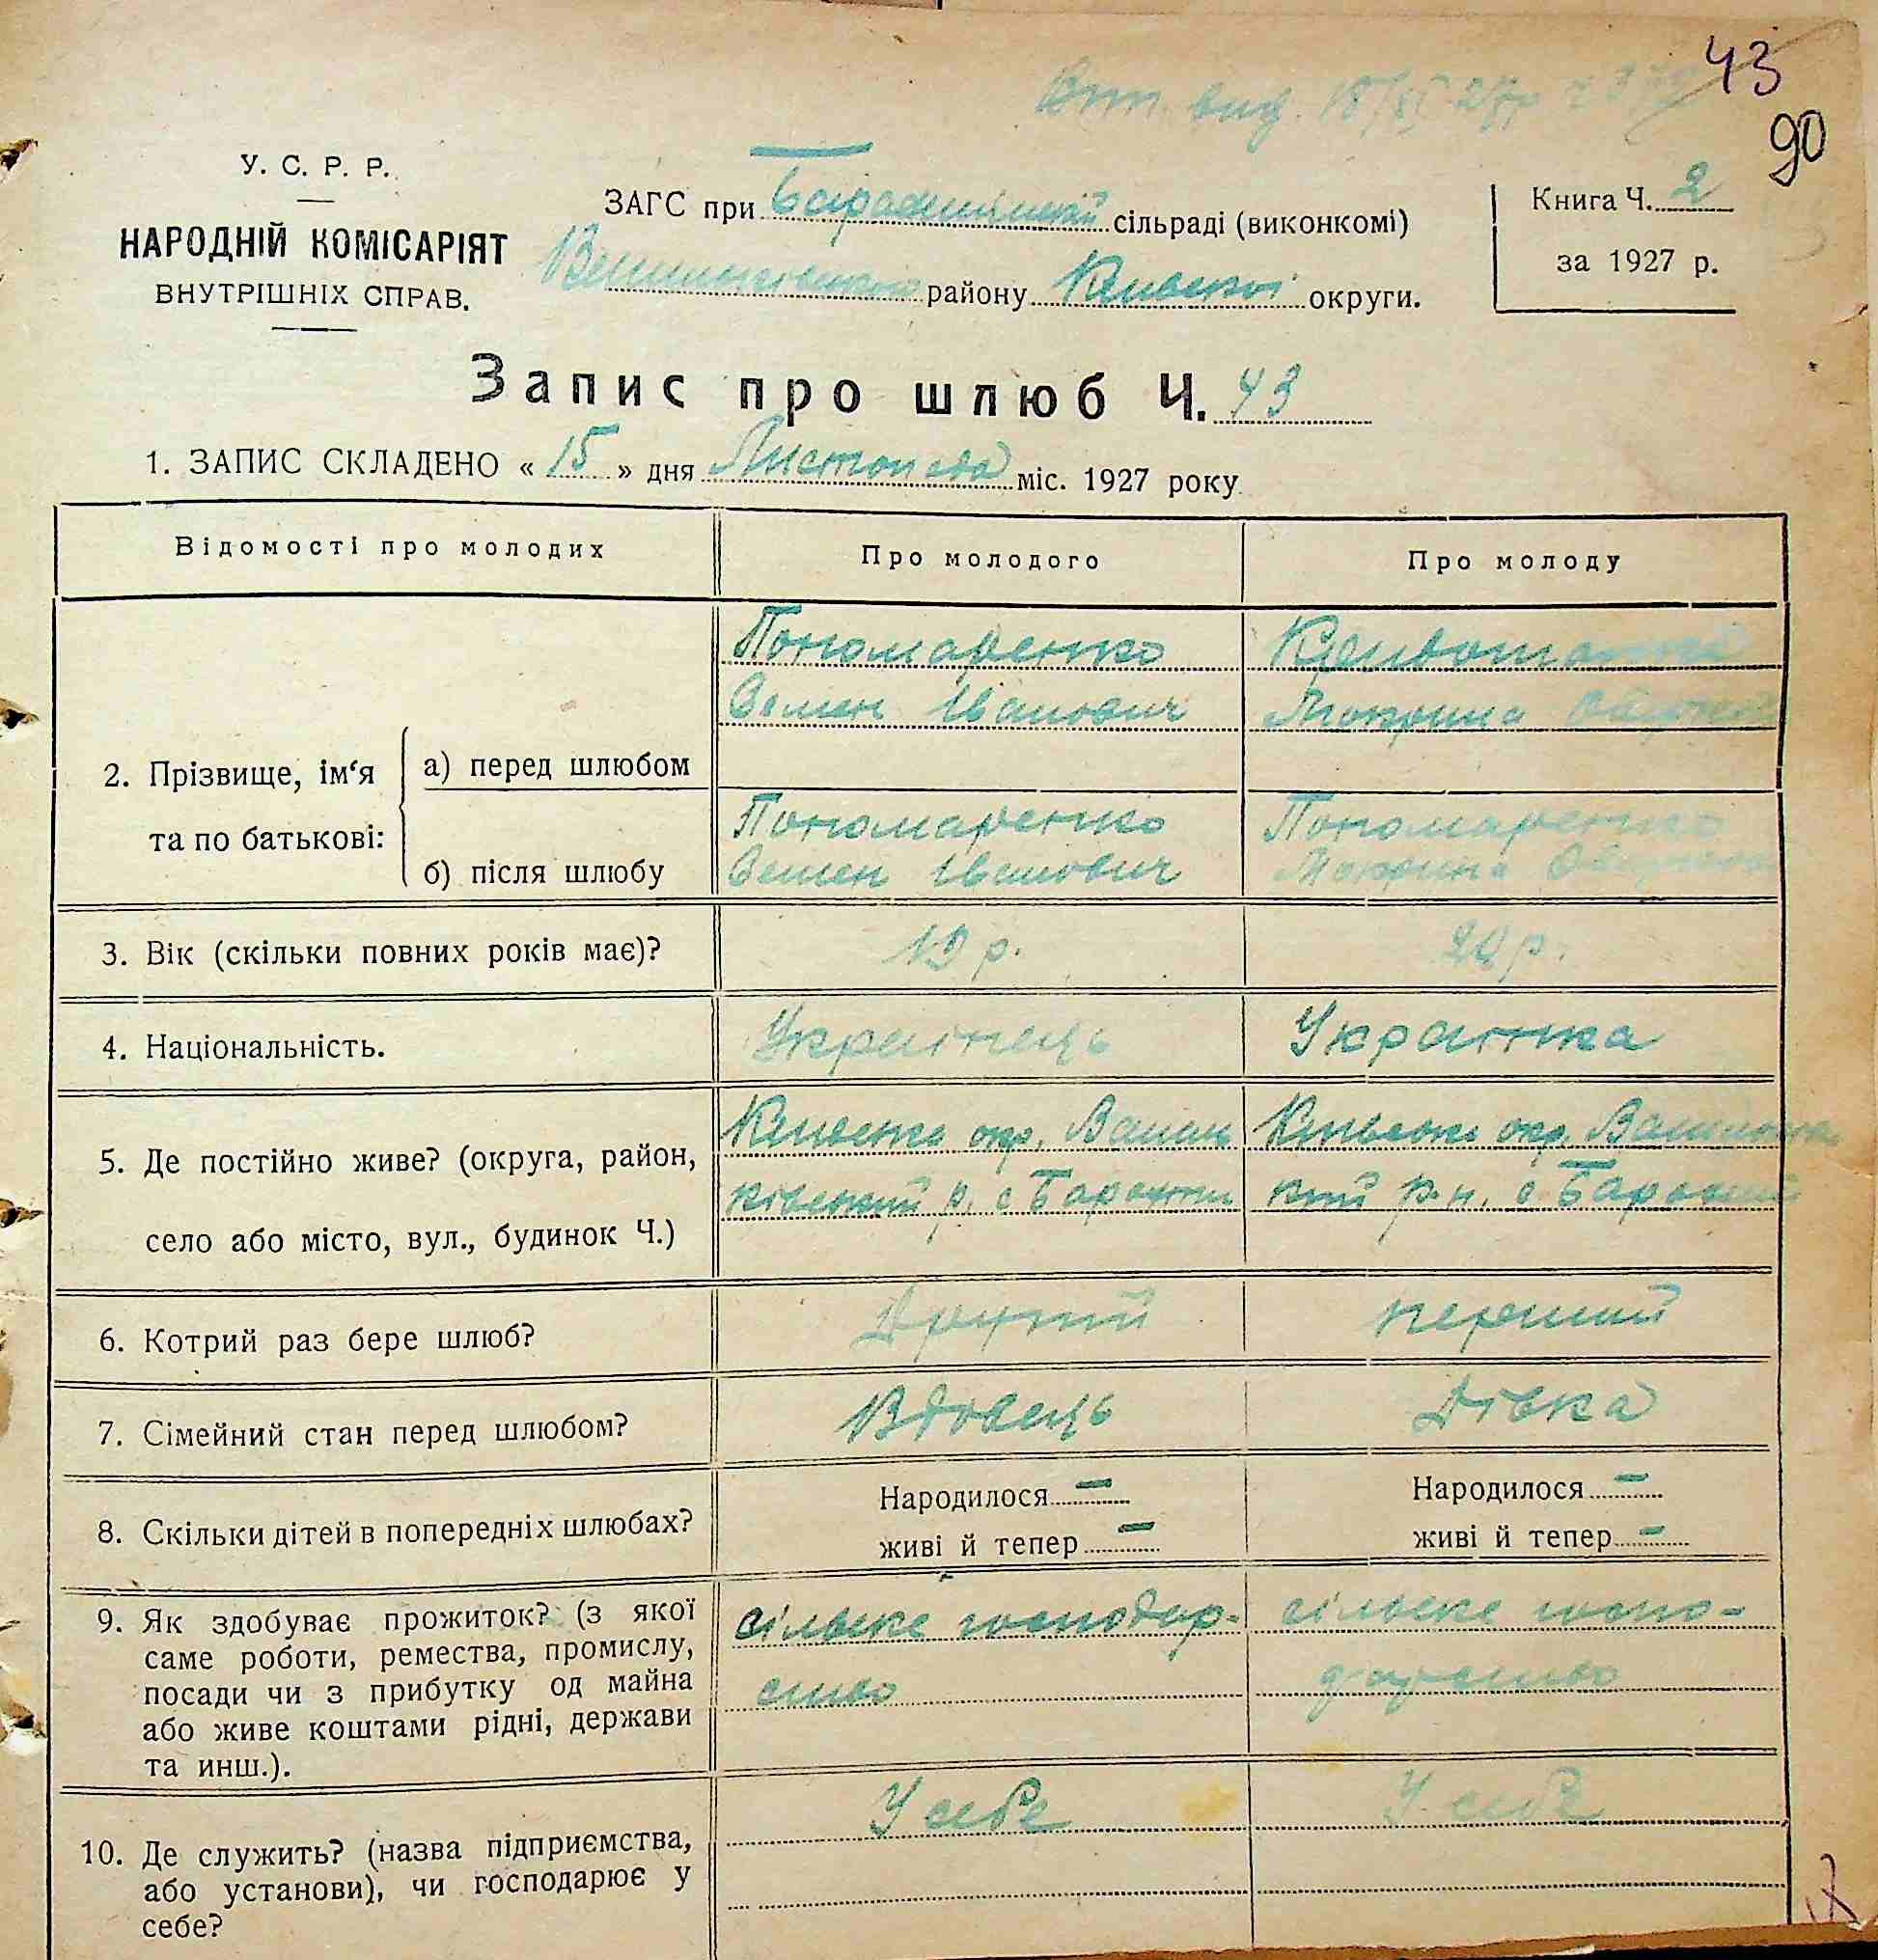 43
Вит. вид. 18/XI 27р
90
У. С. Р. Р.
НАРОДНІЙ КОМІСАРІЯТ
ВНУТРІШНІХ СПРАВ.
ЗАГС при Барахтянській сільраді (виконкомі)
району Київської округи.
Книга Ч. 2
за 1927 р.
Запис про шлюб Ч. 43
1. ЗАПИС СКЛАДЕНО « 15 » дня Листопада міс. 1927 року
Відомості про молодих
Про молодого
Про молоду
2. Прізвище, ім‘я та по батькові:
а) перед шлюбом
Пономаренко
Семен Іванович
Мокрина
б) після шлюбу
Пономаренко
Семен Іванович
Пономаренко
Мокрина
3. Вік (скільки повних років має)?
19 р.
20 р.
4. Національність.
Українець
Українка
5. Де постійно живе? (округа, район,
село або місто, вул., будинок Ч.)
Київська окр. Васил
ківський р. с Барахти
Київська окр. Васильків
кий р-н. с Барахти
6. Котрий раз бере шлюб?
Другий
перший
7. Сімейний стан перед шлюбом?
Вдовець
Дівка
8. Скільки дітей в попередніх шлюбах?
Народилося —
живі й тепер —
Народилося —
живі й тепер —
9. Як здобуває прожиток? (з якої
саме роботи, ремества, промислу,
посади чи з прибутку од майна
або живе коштами рідні, держави
та инш.).
сільське господар-
ство
сільське госпо-
дарство
10. Де служить? (назва підприємства,
або установи), чи господарює у
себе?
У себе
У себе